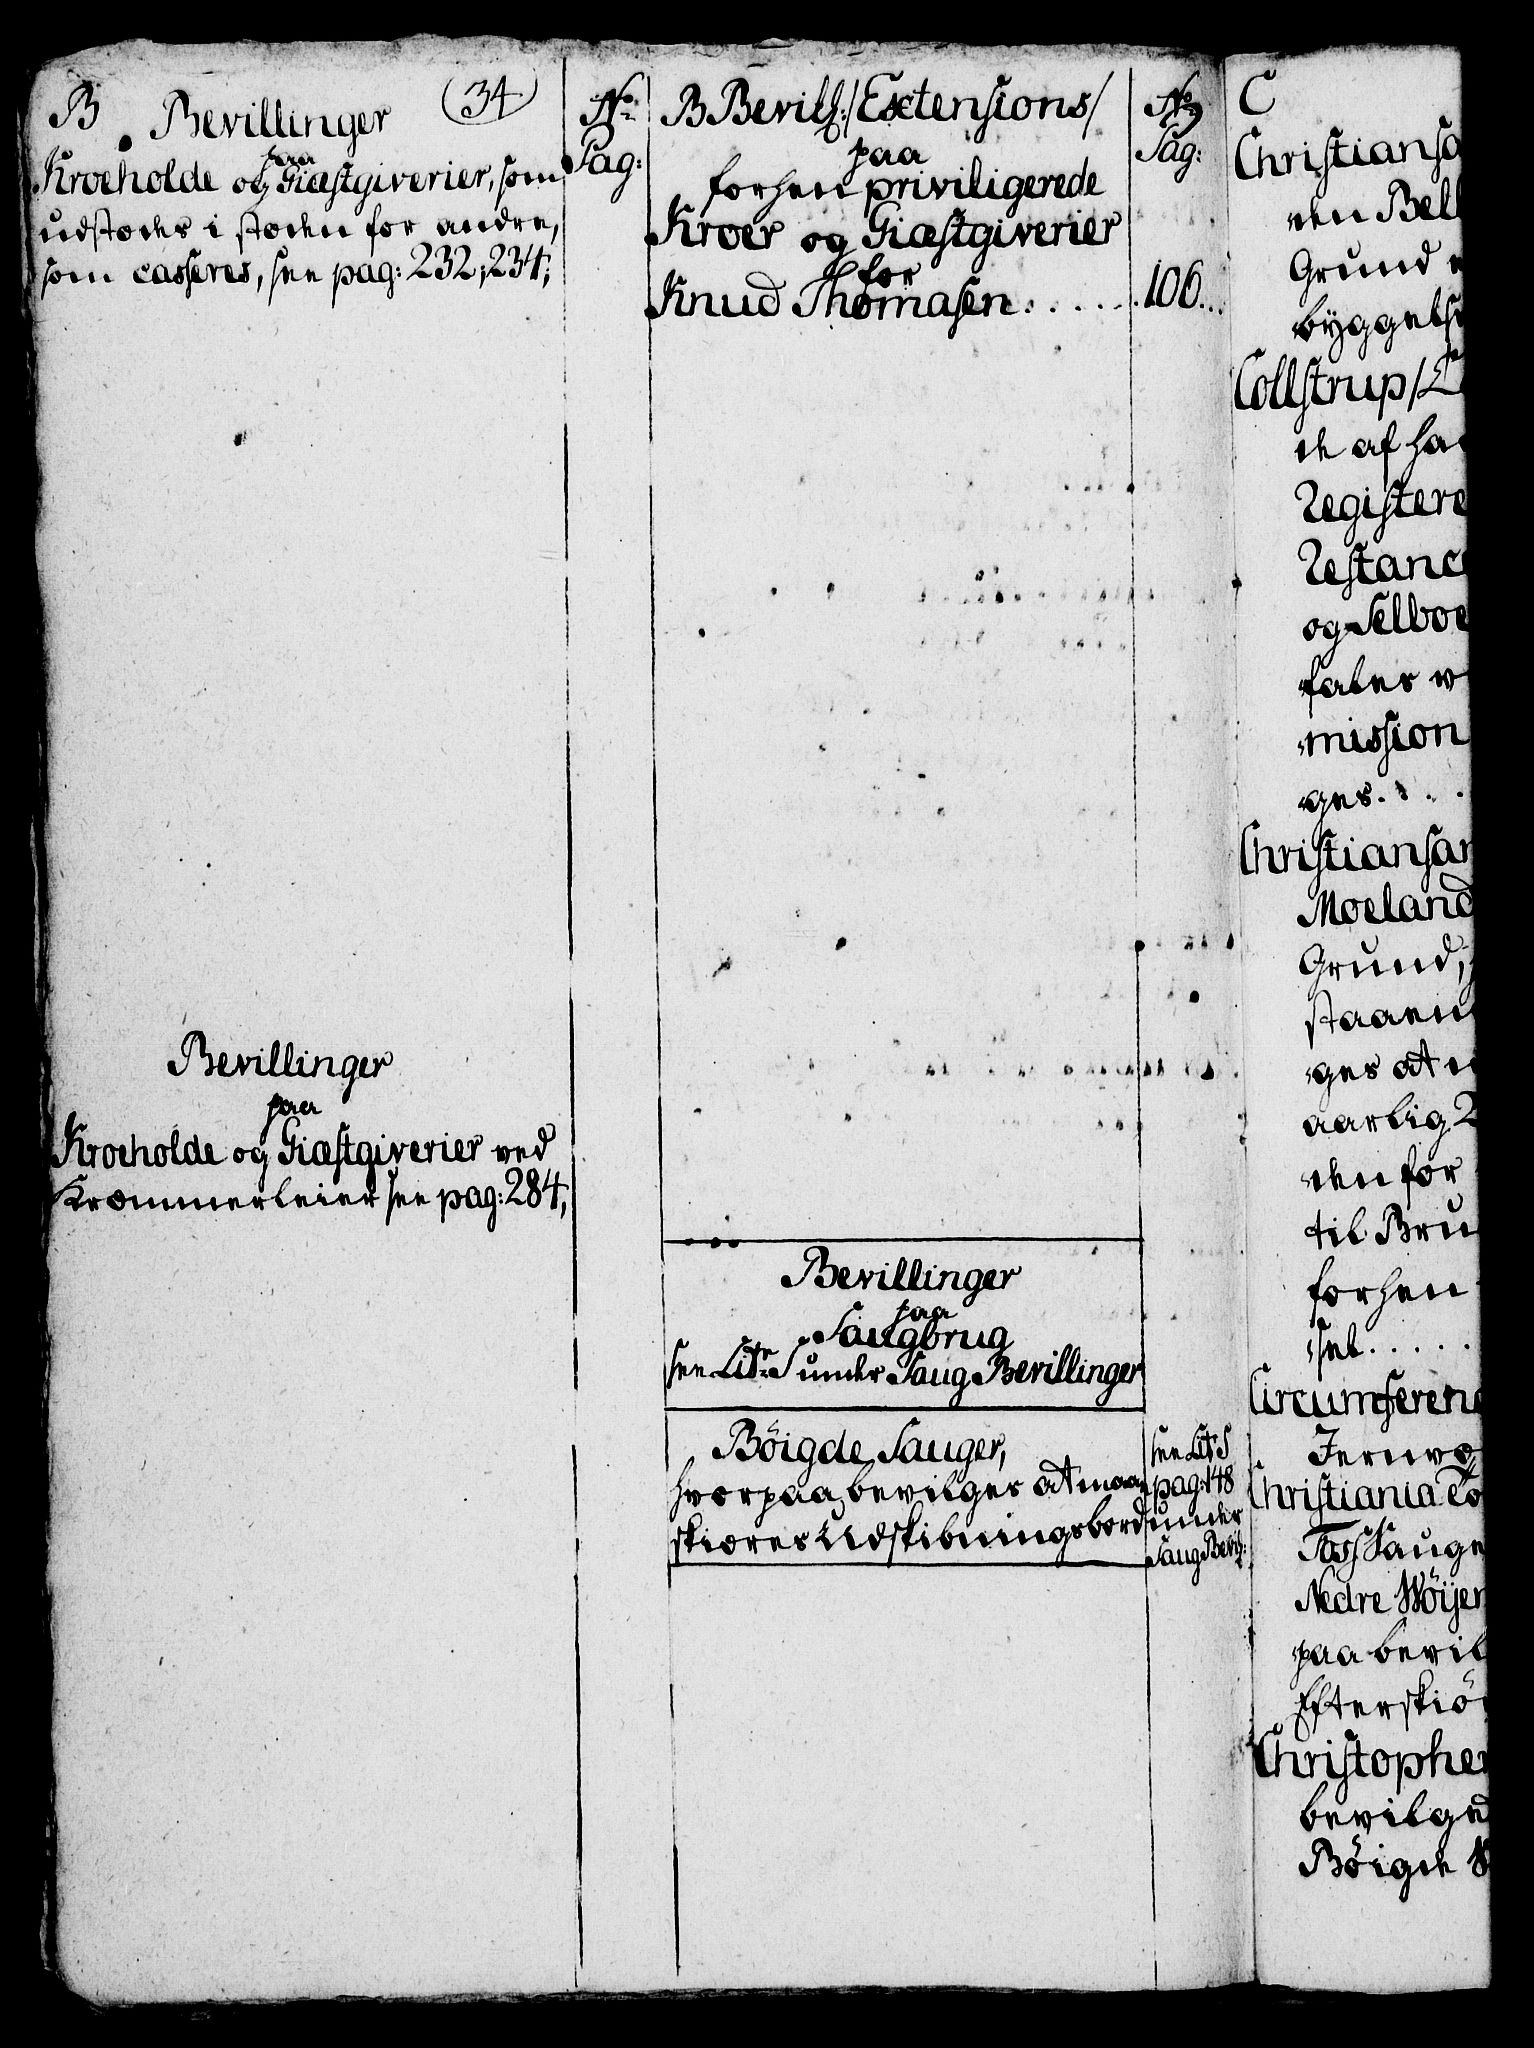 B Bevillinger (34)
paa
Kroeholde og Giæstgiverier, som
udstædes i stæden for andre,
som casseres, see pag: 232,;234;
Bevillinger
paa
Kroeholde og Giæstgiverier ved
Kræmmerleier see pag: 284,
No
Pag:
B Bevilg:/Extensions/
paa
forhen priviligerede
Kroer og Giæstgiverier
for
Knud Thomasen . . . . . .
Bevillinger
paa
Saugbrug
see Litr S under Saug Bevillinger
Böigde Sauger,
hvorpaa bevilges at maae
skiæres Udskibningsbord
No
Pag:
106. . .
see Litr S
pag: 148
under
Saug Bevilg:
C
Christiansa
den Bell
Grund
byggels
Collstrup/
de af ha
Registere
Restance
og Selboe
fales v
mission
ges. . . .
Christiansan
Moeland
Grund,
staaen
ges at
aarlig 2
den for
til Bru
forhen
sel. . . . .
Circumferenc
Jernvæ
Christiania
Foss Sauge
Nedre Wöijen
paa bevil
Efterskiö
Christopher
bevilged
Böigde